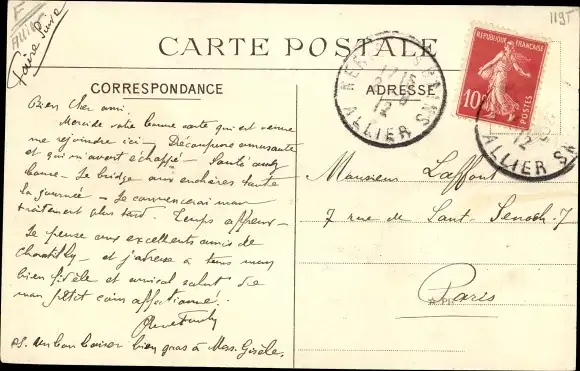 F
Allier
Faire Suivre
1195
CARTE POSTALE
CORRESPONDANCE
ADRESSE
REPUBLIQUE FRANÇAISE
10c
POSTES
ALLIER
12
ALLIER
12
Bien cher ami
Merci de votre bonne carte qui est venue
me rejoindre ici — Découpure amusante
et qui m'avait échappé — Santé assez
bonne — Le bridge aux enchères toute
la journée — Je commencerai mon
traitement plus tard. Temps affreux —
Je pense aux excellents amis de
Chantilly — et j'adresse à tous mon
bien fidèle et amical salut de
mon petit coin affectionné.
PS. Un bon baiser bien gros à Mess. Gisèle.
Monsieur Laffont
7 rue de Saint-Senoch - 7
Paris